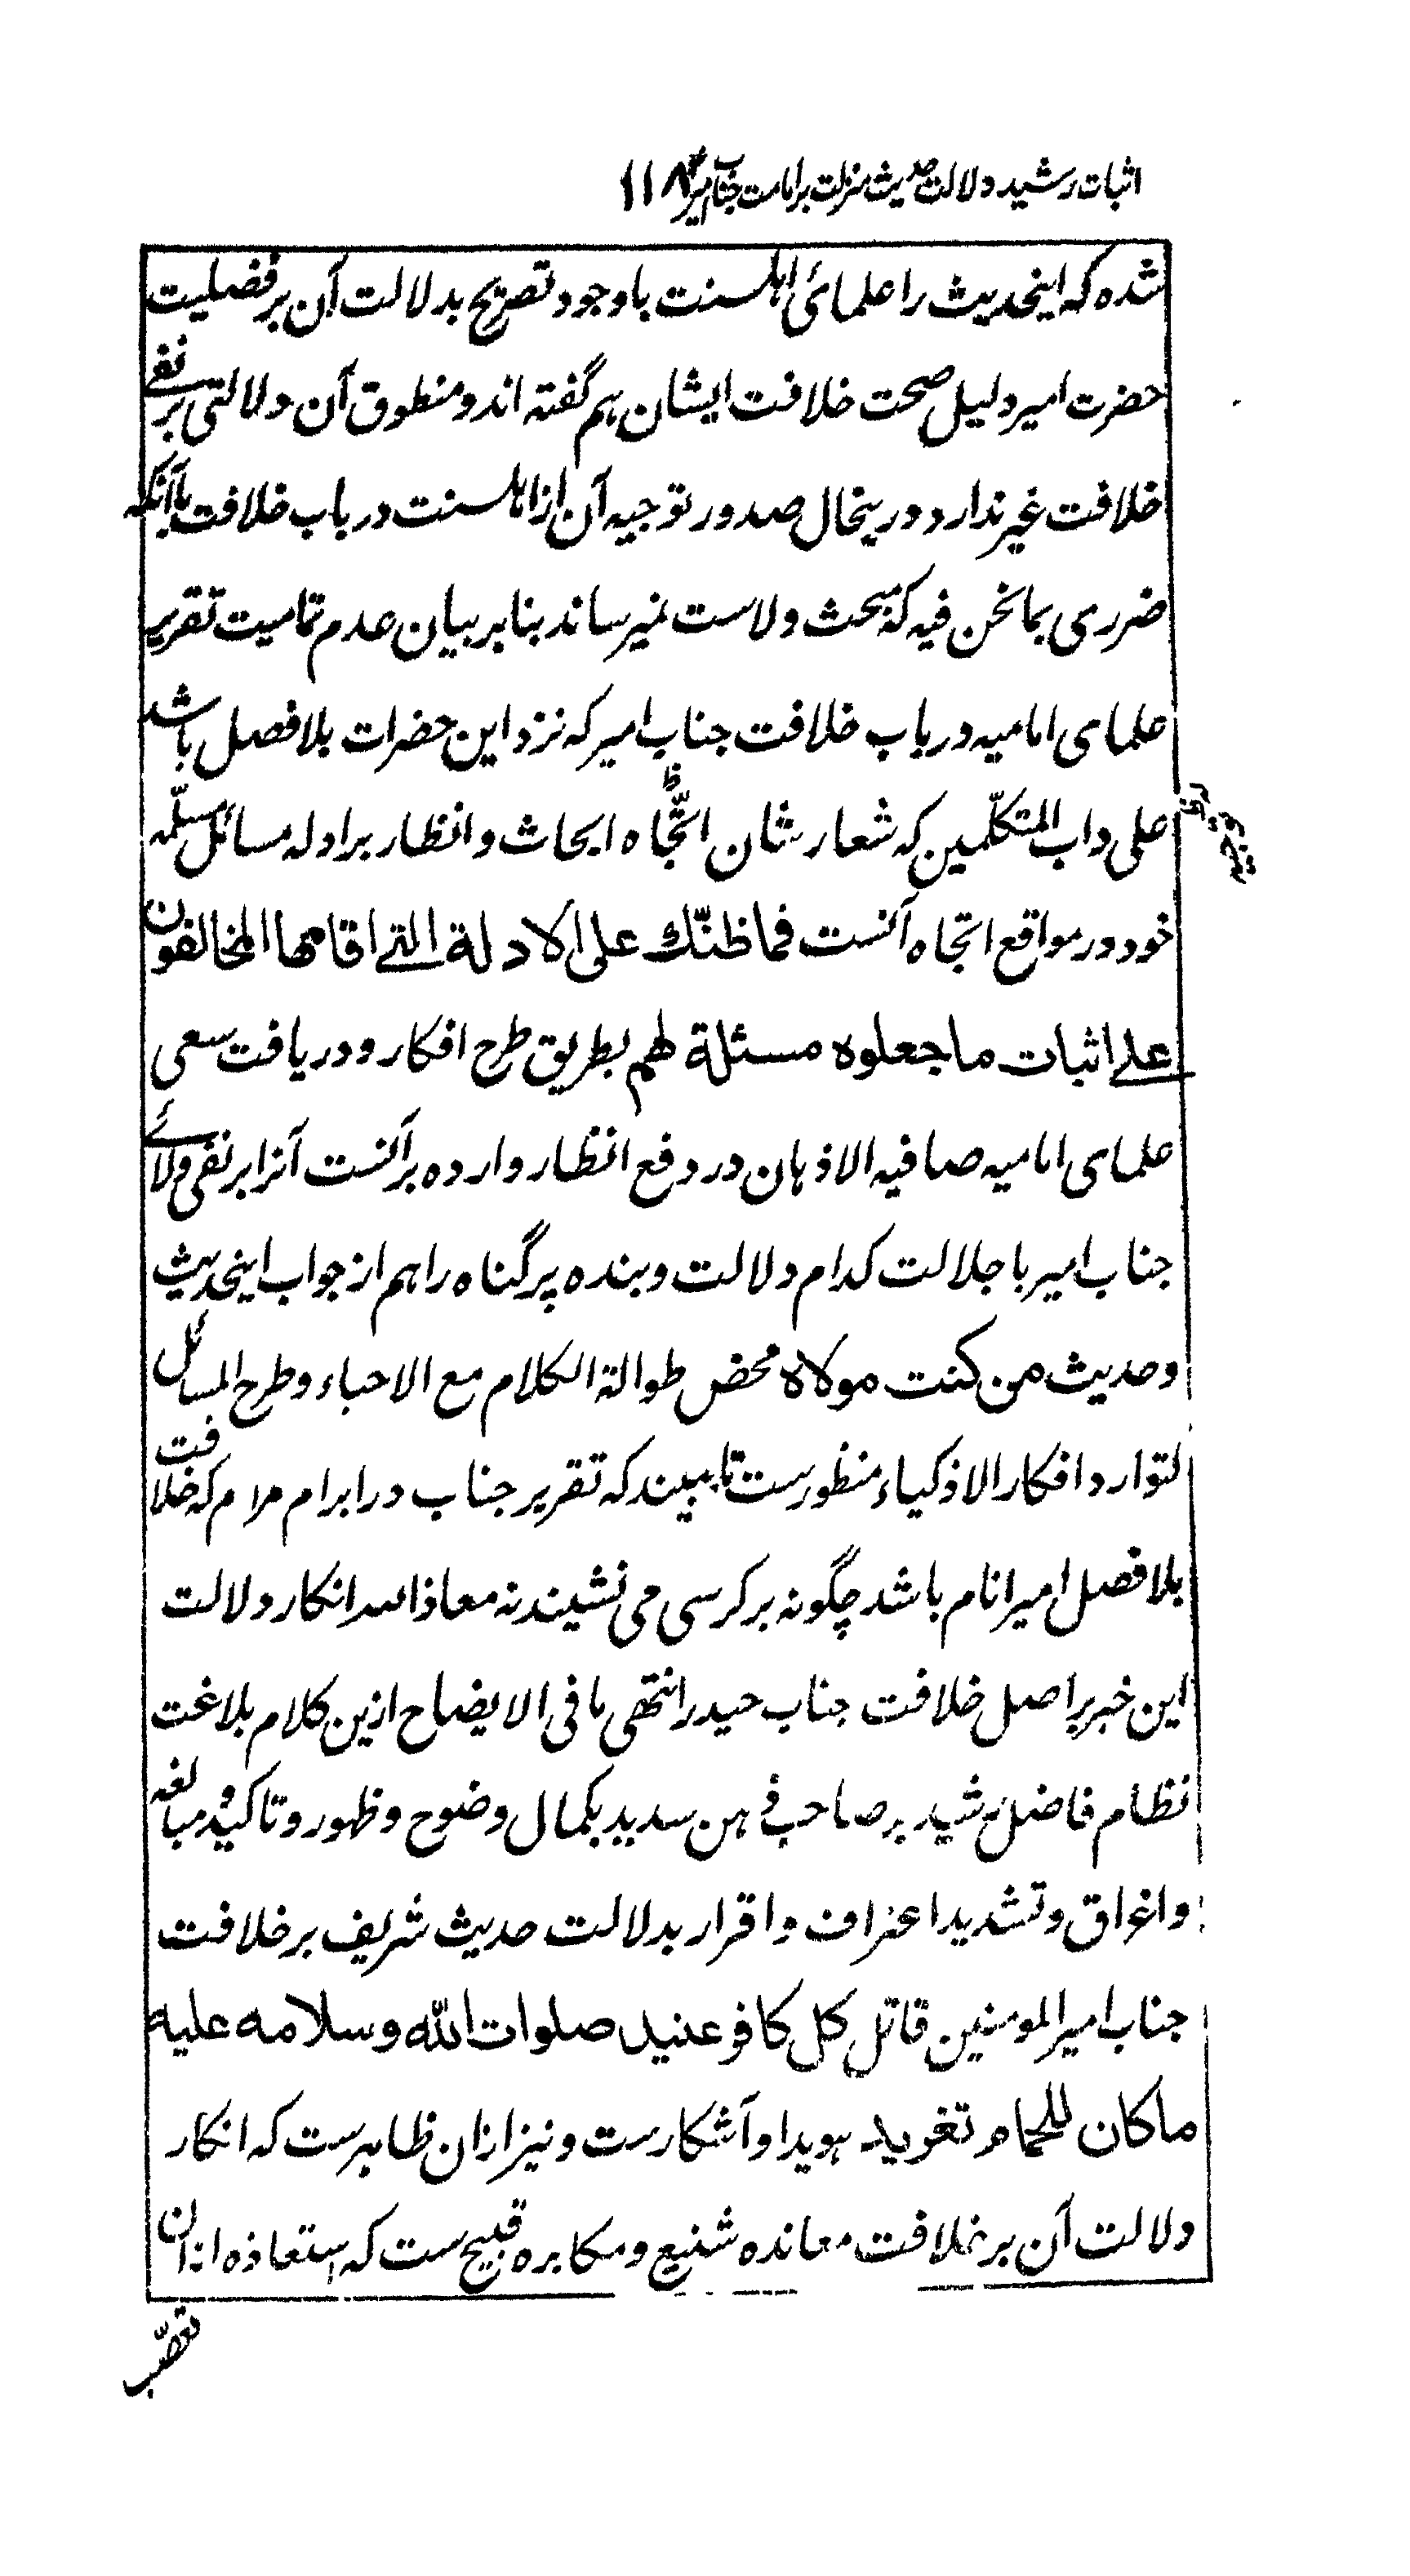 اثبات رشید دلالت حدیث منزلت بر امامت جناب امیرؑ ۱۱۸
شده که اینحدیث را علمائی اهلسنت باوجود تصریح بدلالت آن بر فضلیت
حضرت امیر دلیل صحت خلافت ایشان هم گفته اند و منطوق آن دلالتی بر نفی
خلافت غیر ندارد و درینحال صدور توجیه آن از اهلسنت در باب خلافت با آنکه
ضرری بما نحن فیه که مبحث ولاست نمیرساند بنابر بیان عدم تمامیت تقریر
علمای امامیه در باب خلافت جناب امیر که نزد این حضرات بلا فصل باشد
علی داب المتکلّمین که شعار شان اتّجاه ابحاث و انظار بر ادله مسائل مسلّمه
خود در مواقع اتجاه آنست فما ظنّك علی الادلة التی اقامها المخالفون
علی اثبات ما جعلوه مسئلة لهم بطریق طرح افکار و دریافت سعی
علمای امامیه صافیه الاذهان در دفع انظار وارده بر آنست آنرا بر نفی ولائے
جناب امیر با جلالت کدام دلالت و بنده پر گناه را هم از جواب اینحدیث
و حدیث من کنت مولاه محض طوالة الکلام مع الاحباء و طرح المسائل
لتوارد افکار الاذکیاء منظورست تا ببیند که تقریر جناب در ابرام مرام که خلافت
بلا فصل امیر انام باشد چگونه بر کرسی می نشیند نه معاذ الله انکار دلالت
این خبر بر اصل خلافت جناب حیدر انتهی ما فی الایضاح ازین کلام بلاغت
نظام فاضل رشید بر صاحب ذهن سدید بکمال وضوح و ظهور و تاکید و مبالغه
و اغراق و تشدید اعتراف و اقرار بدلالت حدیث شریف بر خلافت
جناب امیر المومنین قاتل کل کافر عنید صلوات الله وسلامه علیه
ما کان للحمام تغرید هویدا و آشکارست و نیز ازان ظاهرست که انکار
دلالت آن بر خلافت معانده شنیع و مکابره قبیح ست که استعاذه ازان